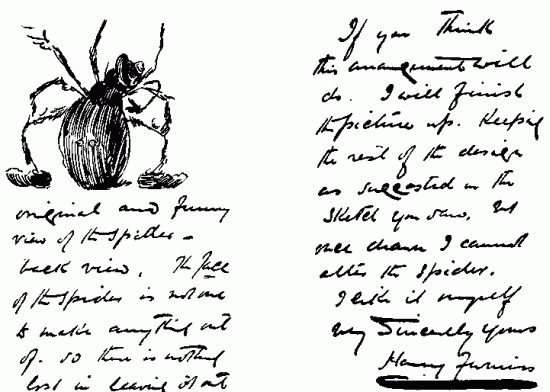 original and funny
view of the Spider –
back view. The face
of the Spider is not one
to make anything out
of. So there is nothing
lost in leaving it out
If you think
this arrangement will
do. I will finish
the picture up. Keeping
the rest of the design
as suggested in the
Sketch you saw, but
once drawn I cannot
alter the Spider.
I like it myself
very Sincerely yours
Harry Furniss